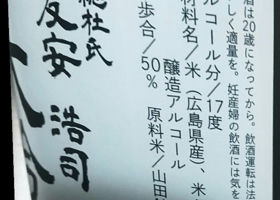 酒は20歳になってから。飲酒運転は法
しく適量を。妊産婦の飲酒には気を
ルコール分/17度
材料名/米(広島県産)、米
醸造アルコール
歩合/50% 原料米/山田
総杜氏
友安 浩司